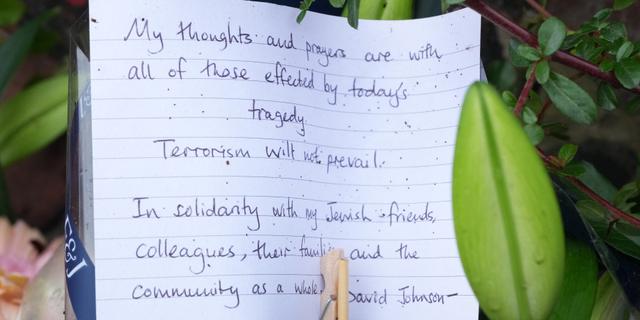 My thoughts and prayers are with
all of those effected by today's
tragedy
Terrorism will not prevail.
In solidarity with my Jewish friends,
colleagues, their families and the
community as a whole. David Johnson-